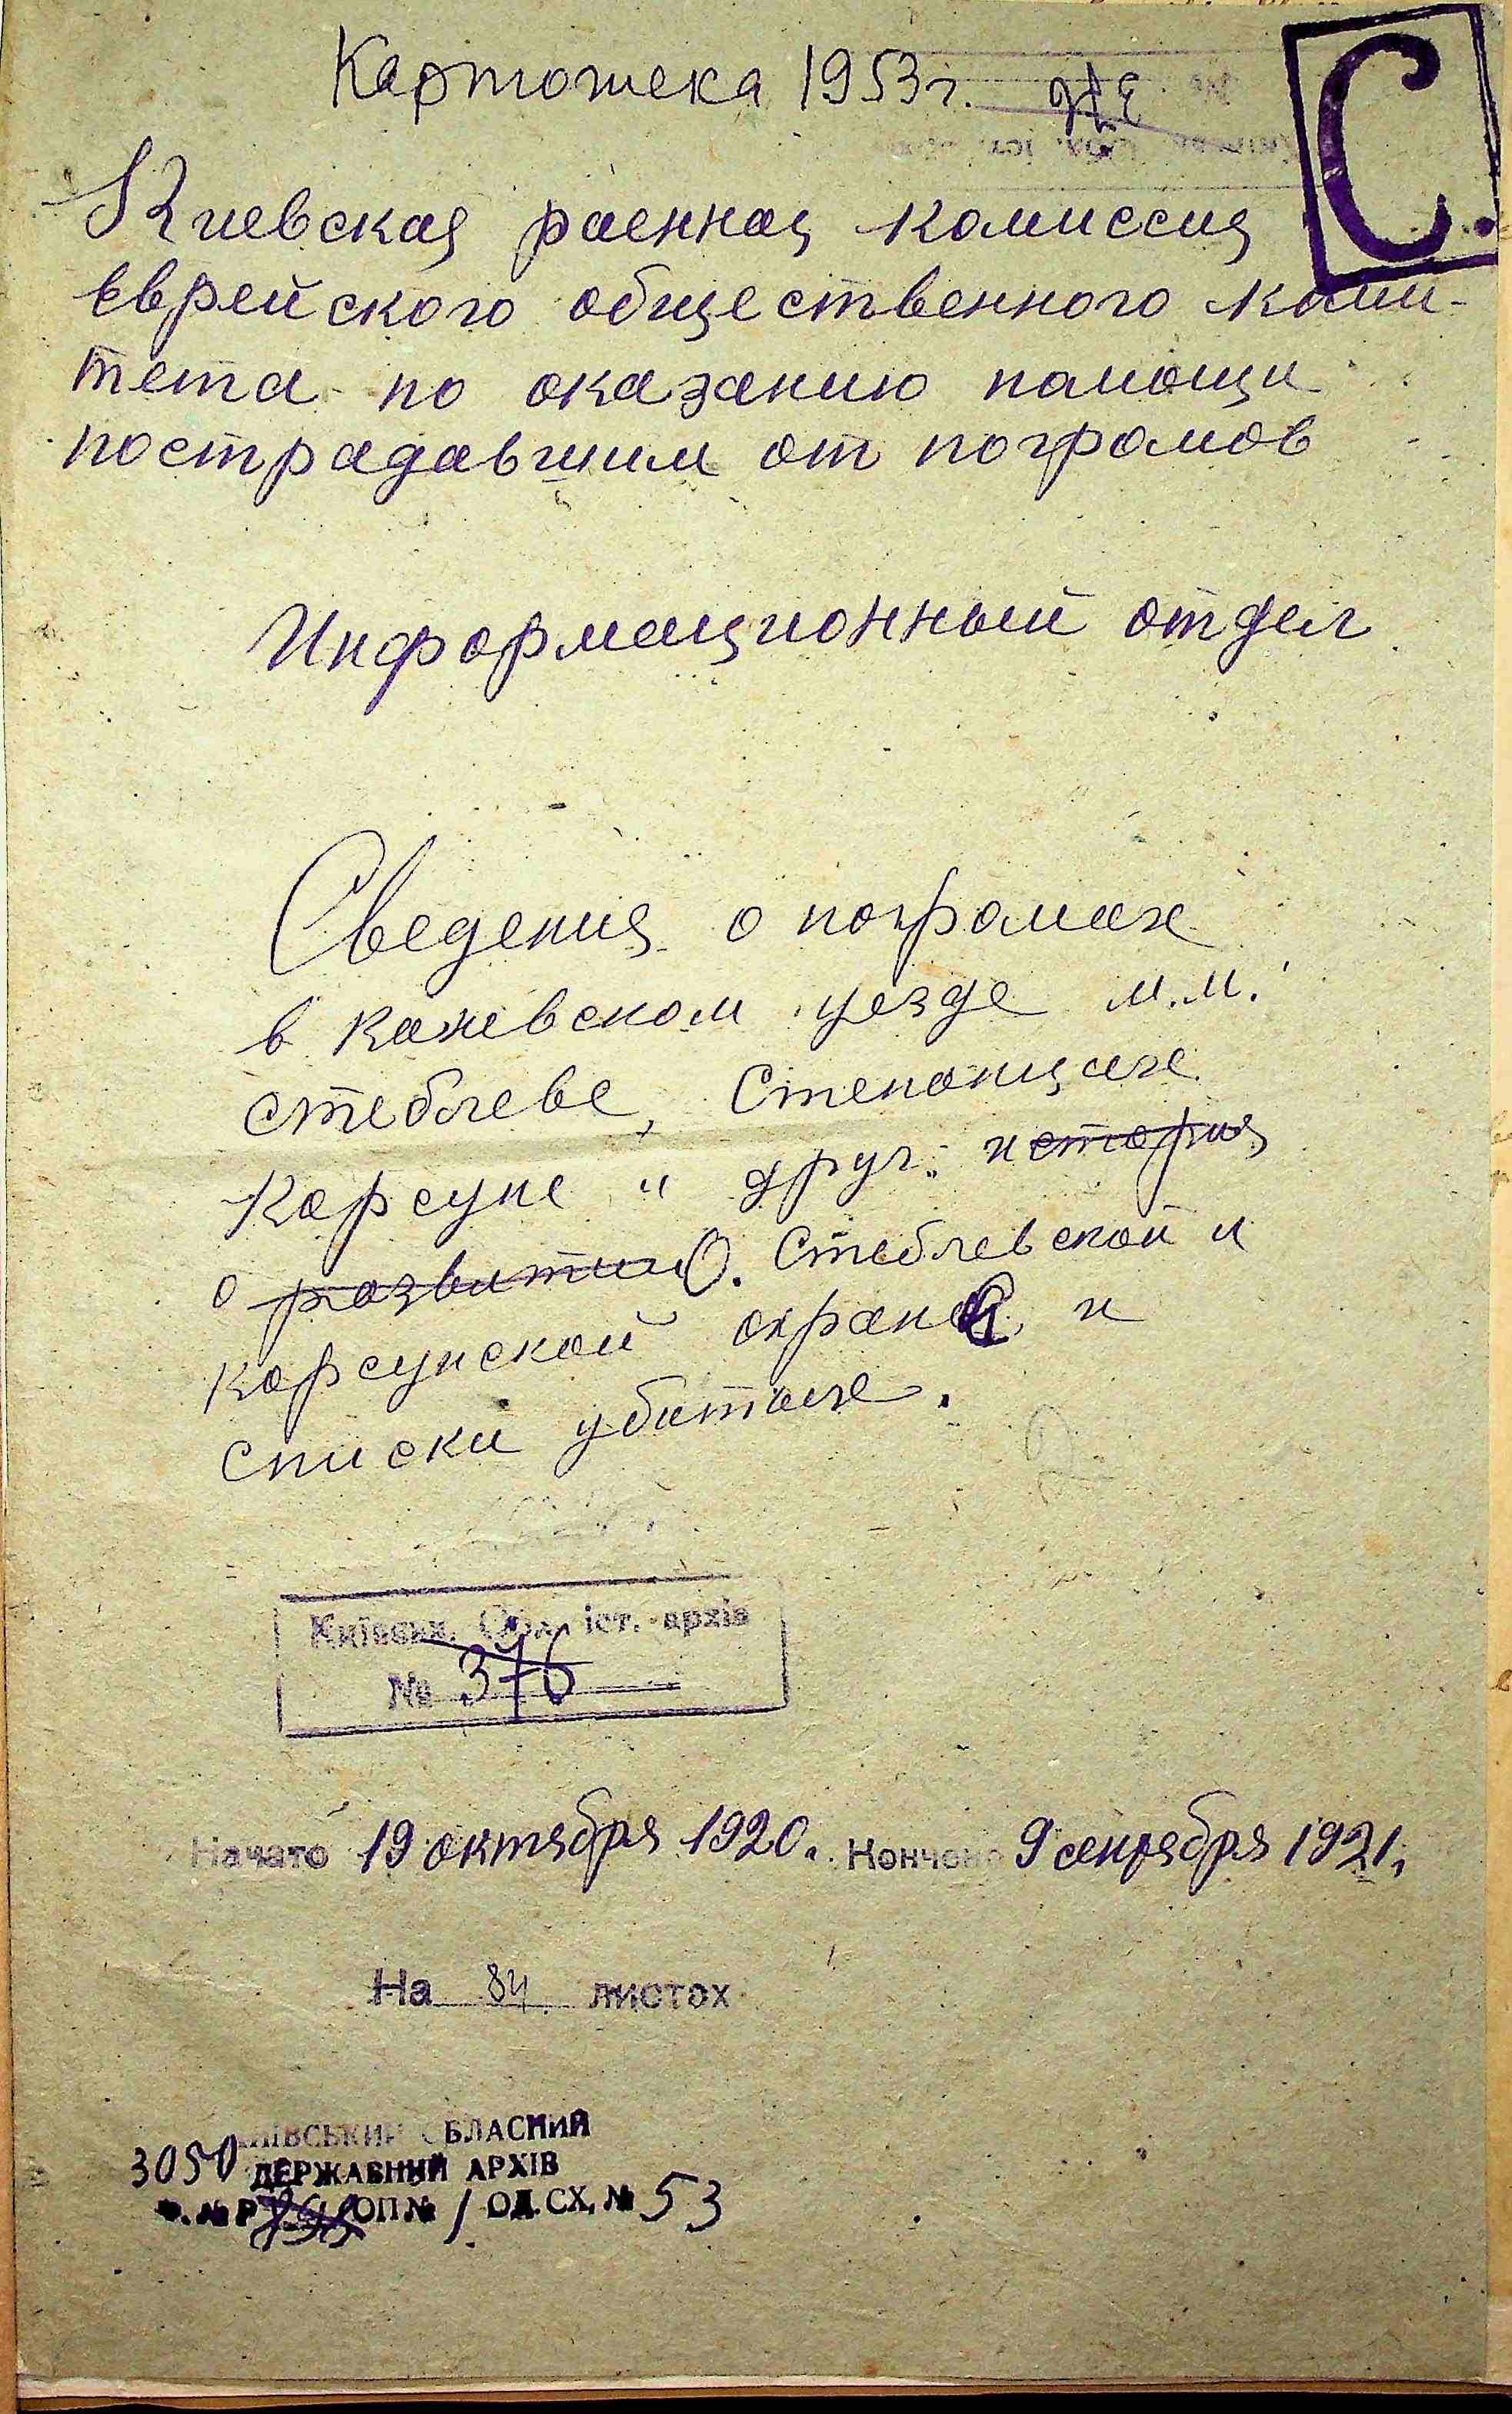 Картотека 1953 г.
С.
Киевская раенная комиссия
Еврейского общественного коми-
тета по оказанию помощи
пострадавшим от погромов
Информационный отдел
Сведения о погромах
в Каневском уезде м.м.
Стеблеве, Степанцах
Корсуне и друг. история
о развитии О. Стеблевской и
Корсунской охране, и
списки убитых.
Київськ. Обл. іст. архів
№ 376
Начато 19 октября 1920 г. Кончено 9 сентября 1921 г.
На 84 листах
КИЇВСЬКИЙ ОБЛАСНИЙ
3050 ДЕРЖАВНИЙ АРХІВ
Ф. № Р ОП № 1 ОД. СХ. № 53